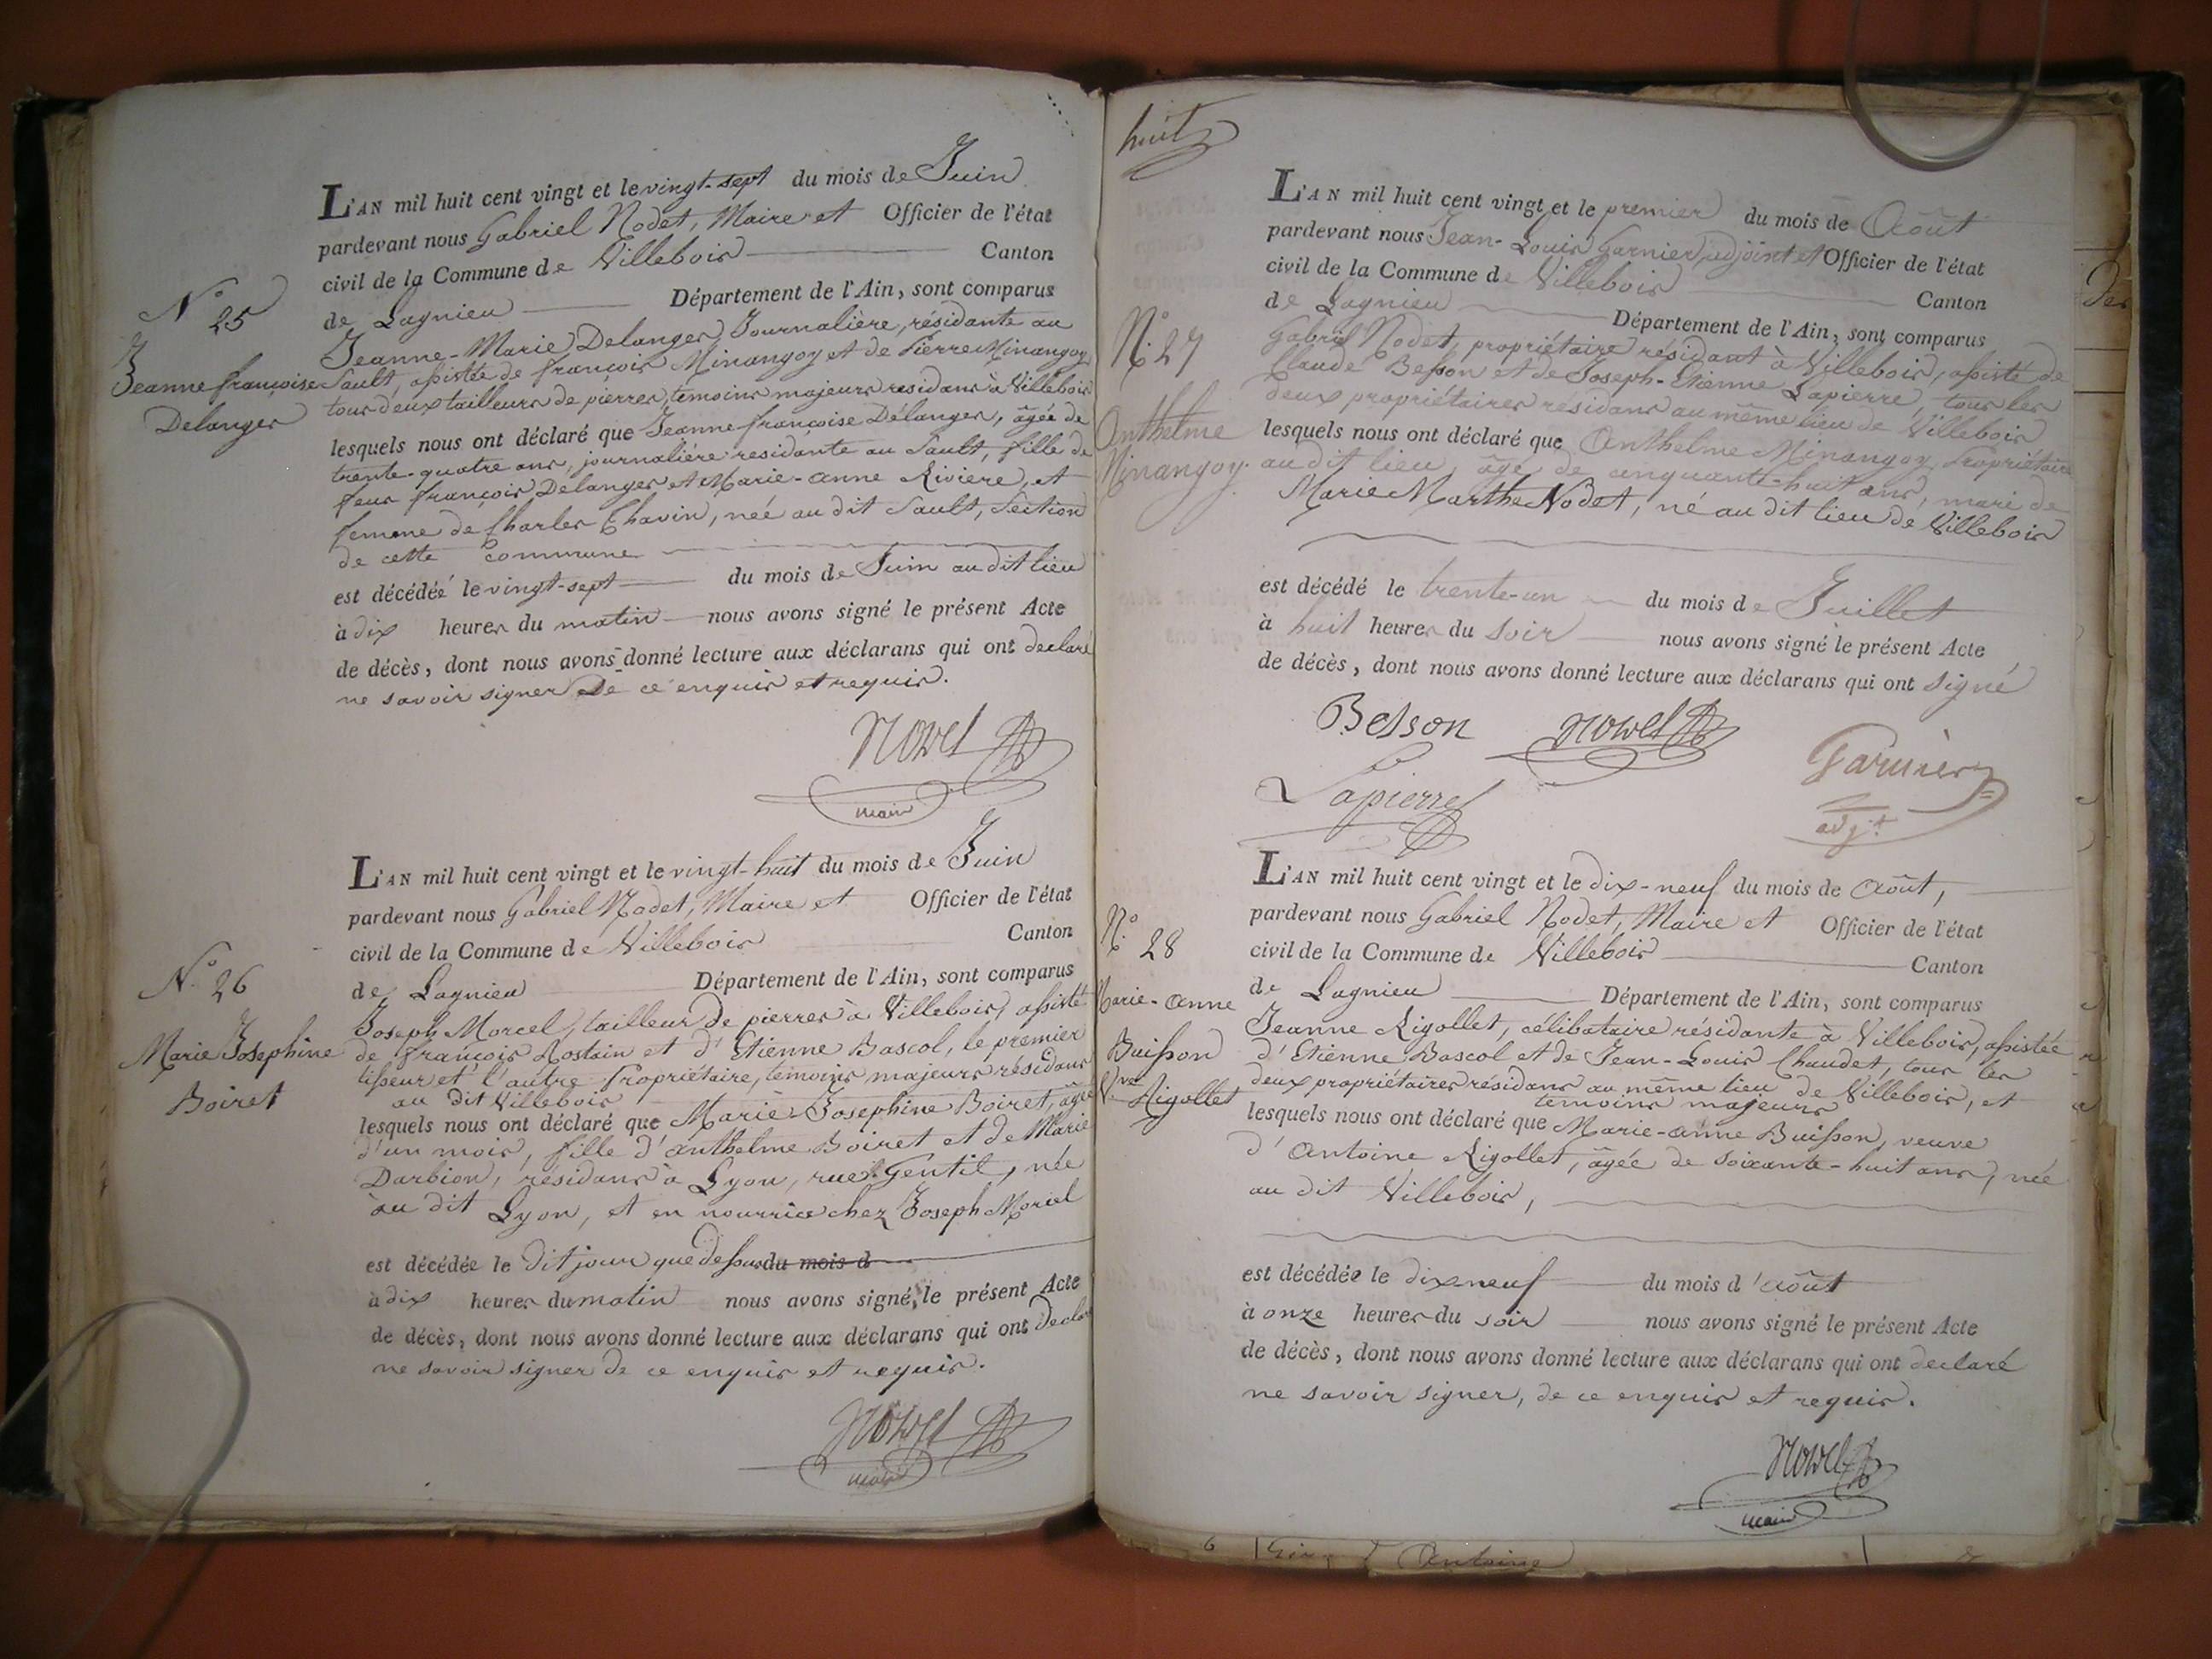 L'AN mil huit cent vingt et le vingt-sept du mois de Juin
pardevant nous Gabriel Nodet, Maire et Officier de l'état
civil de la Commune de Villebois Canton
de Lagnieu Département de l'Ain, sont comparus
N.º 25
Jeanne françoise
Delanger
Jeanne-Marie Delanger, Journalière, résidante au
Sault, assistée de françois Minangoy et de Pierre Minangoy
tous deux tailleurs de pierres, temoins majeurs residans à Villebois
lesquels nous ont déclaré que Jeanne françoise Délanger, âgée de
trente-quatre ans, journalière residante au Sault, fille de
feus françois Delanger et Marie-anne Riviere, et
femme de Charles Chavin, neé au dit Sault, Section
de cette commune
est décédéé le vingt-sept du mois de Juin au dit lieu
à dix heures du matin nous avons signé le présent Acte
de décès, dont nous avons donné lecture aux déclarans qui ont declaré
ne savoir signer de ce enquis et requis.
Nodet
maire
L'AN mil huit cent vingt et le vingt-huit du mois de Juin
pardevant nous Gabriel Nodet, Maire et Officier de l'état
civil de la Commune de Villebois Canton
de Lagnieu Département de l'Ain, sont comparus
N.º 26
Marie Josephine
Boiret
Joseph Morel, tailleur de pierres à Villebois, assisté
de françois Rostain et d'Etienne Bascol, le premier
tisseur et l'autre Propriétaire, témoins majeurs résidans
au dit Villebois
lesquels nous ont déclaré que Marie Josephine Boiret, âgée
d'un mois, fille d'anthelme Boiret et de Marie
Darbion, résidans à Lyon, rue Gentil, née
au dit Lyon, et en nourrice chez Joseph Morel
est décédée le dit jour que dessus du mois d
à dix heures du matin nous avons signé le présent Acte
de décès, dont nous avons donné lecture aux déclarans qui ont declaré
ne savoir signer de ce enquis et requis.
Nodet
maire
huit
L'AN mil huit cent vingt et le premier du mois de Août
pardevant nous Jean-Louis Garnier, adjoint et Officier de l'état
civil de la Commune de Villebois Canton
de Lagnieu Département de l'Ain, sont comparus
N.º 27
Anthelme
Minangoy.
Gabriel Nodet, propriétaire résidant à Villebois, assisté de
Claude Besson et de Joseph-Etienne Lapierre, tous les
deux propriétaires résidans au même lieu de Villebois
lesquels nous ont déclaré que Anthelme Minangoy, Propriétaire
au dit lieu, âgé de cinquante-huit ans, mari de
Marie Marthe Nodet, né au dit lieu de Villebois
est décédé le trente-un du mois de Juillet
à huit heures du soir nous avons signé le présent Acte
de décès, dont nous avons donné lecture aux déclarans qui ont signé
Besson Nodet
Lapierre Garnier
adj.t
L'AN mil huit cent vingt et le dix-neuf du mois de Août,
pardevant nous Gabriel Nodet, Maire et Officier de l'état
civil de la Commune de Villebois Canton
de Lagnieu Département de l'Ain, sont comparus
N.º 28
Marie-anne
Buisson
V.ve Rigollet
Jeanne Rigollet, célibataire résidante à Villebois, assistée
d'Etienne Bascol et de Jean-Louis Chaudet, tous les
deux propriétaires résidans au même lieu de Villebois, et
temoins majeurs
lesquels nous ont déclaré que Marie-anne Buisson, veuve
d'Antoine Rigollet, âgée de soixante-huit ans, née
au dit Villebois,
est décédée le dix neuf du mois d'août
à onze heures du soir nous avons signé le présent Acte
de décès, dont nous avons donné lecture aux déclarans qui ont declaré
ne savoir signer, de ce enquis et requis.
Nodet
maire
6 Antoine